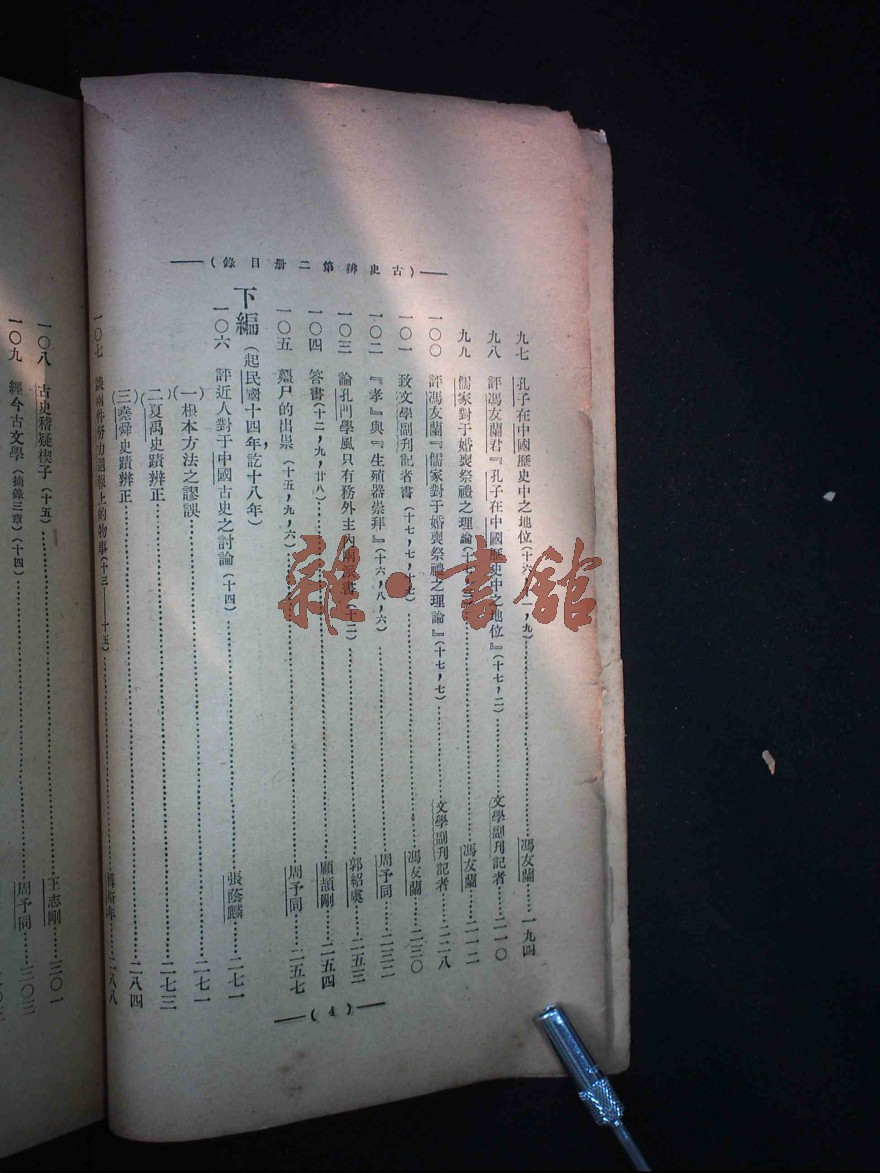 ——(古史辨第二册目錄)——
九七　孔子在中國歷史中之地位(十六,一一,九)……馮友蘭……一九四
九八　評馮友蘭君『孔子在中國歷史中之地位』(十七,二)……文學副刊記者……二一〇
九九　儒家對于婚喪祭禮之理論……馮友蘭……二一二
一〇〇　評馮友蘭『儒家對于婚喪祭禮之理論』(十七,七)……文學副刊記者……二二八
一〇一　致文學副刊記者書(十七,七,十七)……馮友蘭……二三〇
一〇二　『孝』與『生殖器崇拜』(十六,八,六)……周予同……二三二
一〇三　論孔門學風只有務外主內……書(十二)……郭紹虞……二五三
一〇四　答書(十二,九,廿八)……顧頡剛……二五四
一〇五　殭尸的出祟(十五,九,六)……周予同……二五七
下編(起民國十四年,訖十八年)
一〇六　評近人對于中國古史之討論(十四)……張蔭麟……二七一
(一)根本方法之謬誤……二七一
(二)夏禹史蹟辨正……二七三
(三)堯舜史蹟辨正……二八四
一〇七　努力週報上的物事(十三——十五)……傅斯年……二八八
——(4)——
一〇八　古史稽疑楔子(十五)……王志剛……三〇一
一〇九　經今古文學(摘錄三章)(十四)……周予同……三〇三
雜·書館